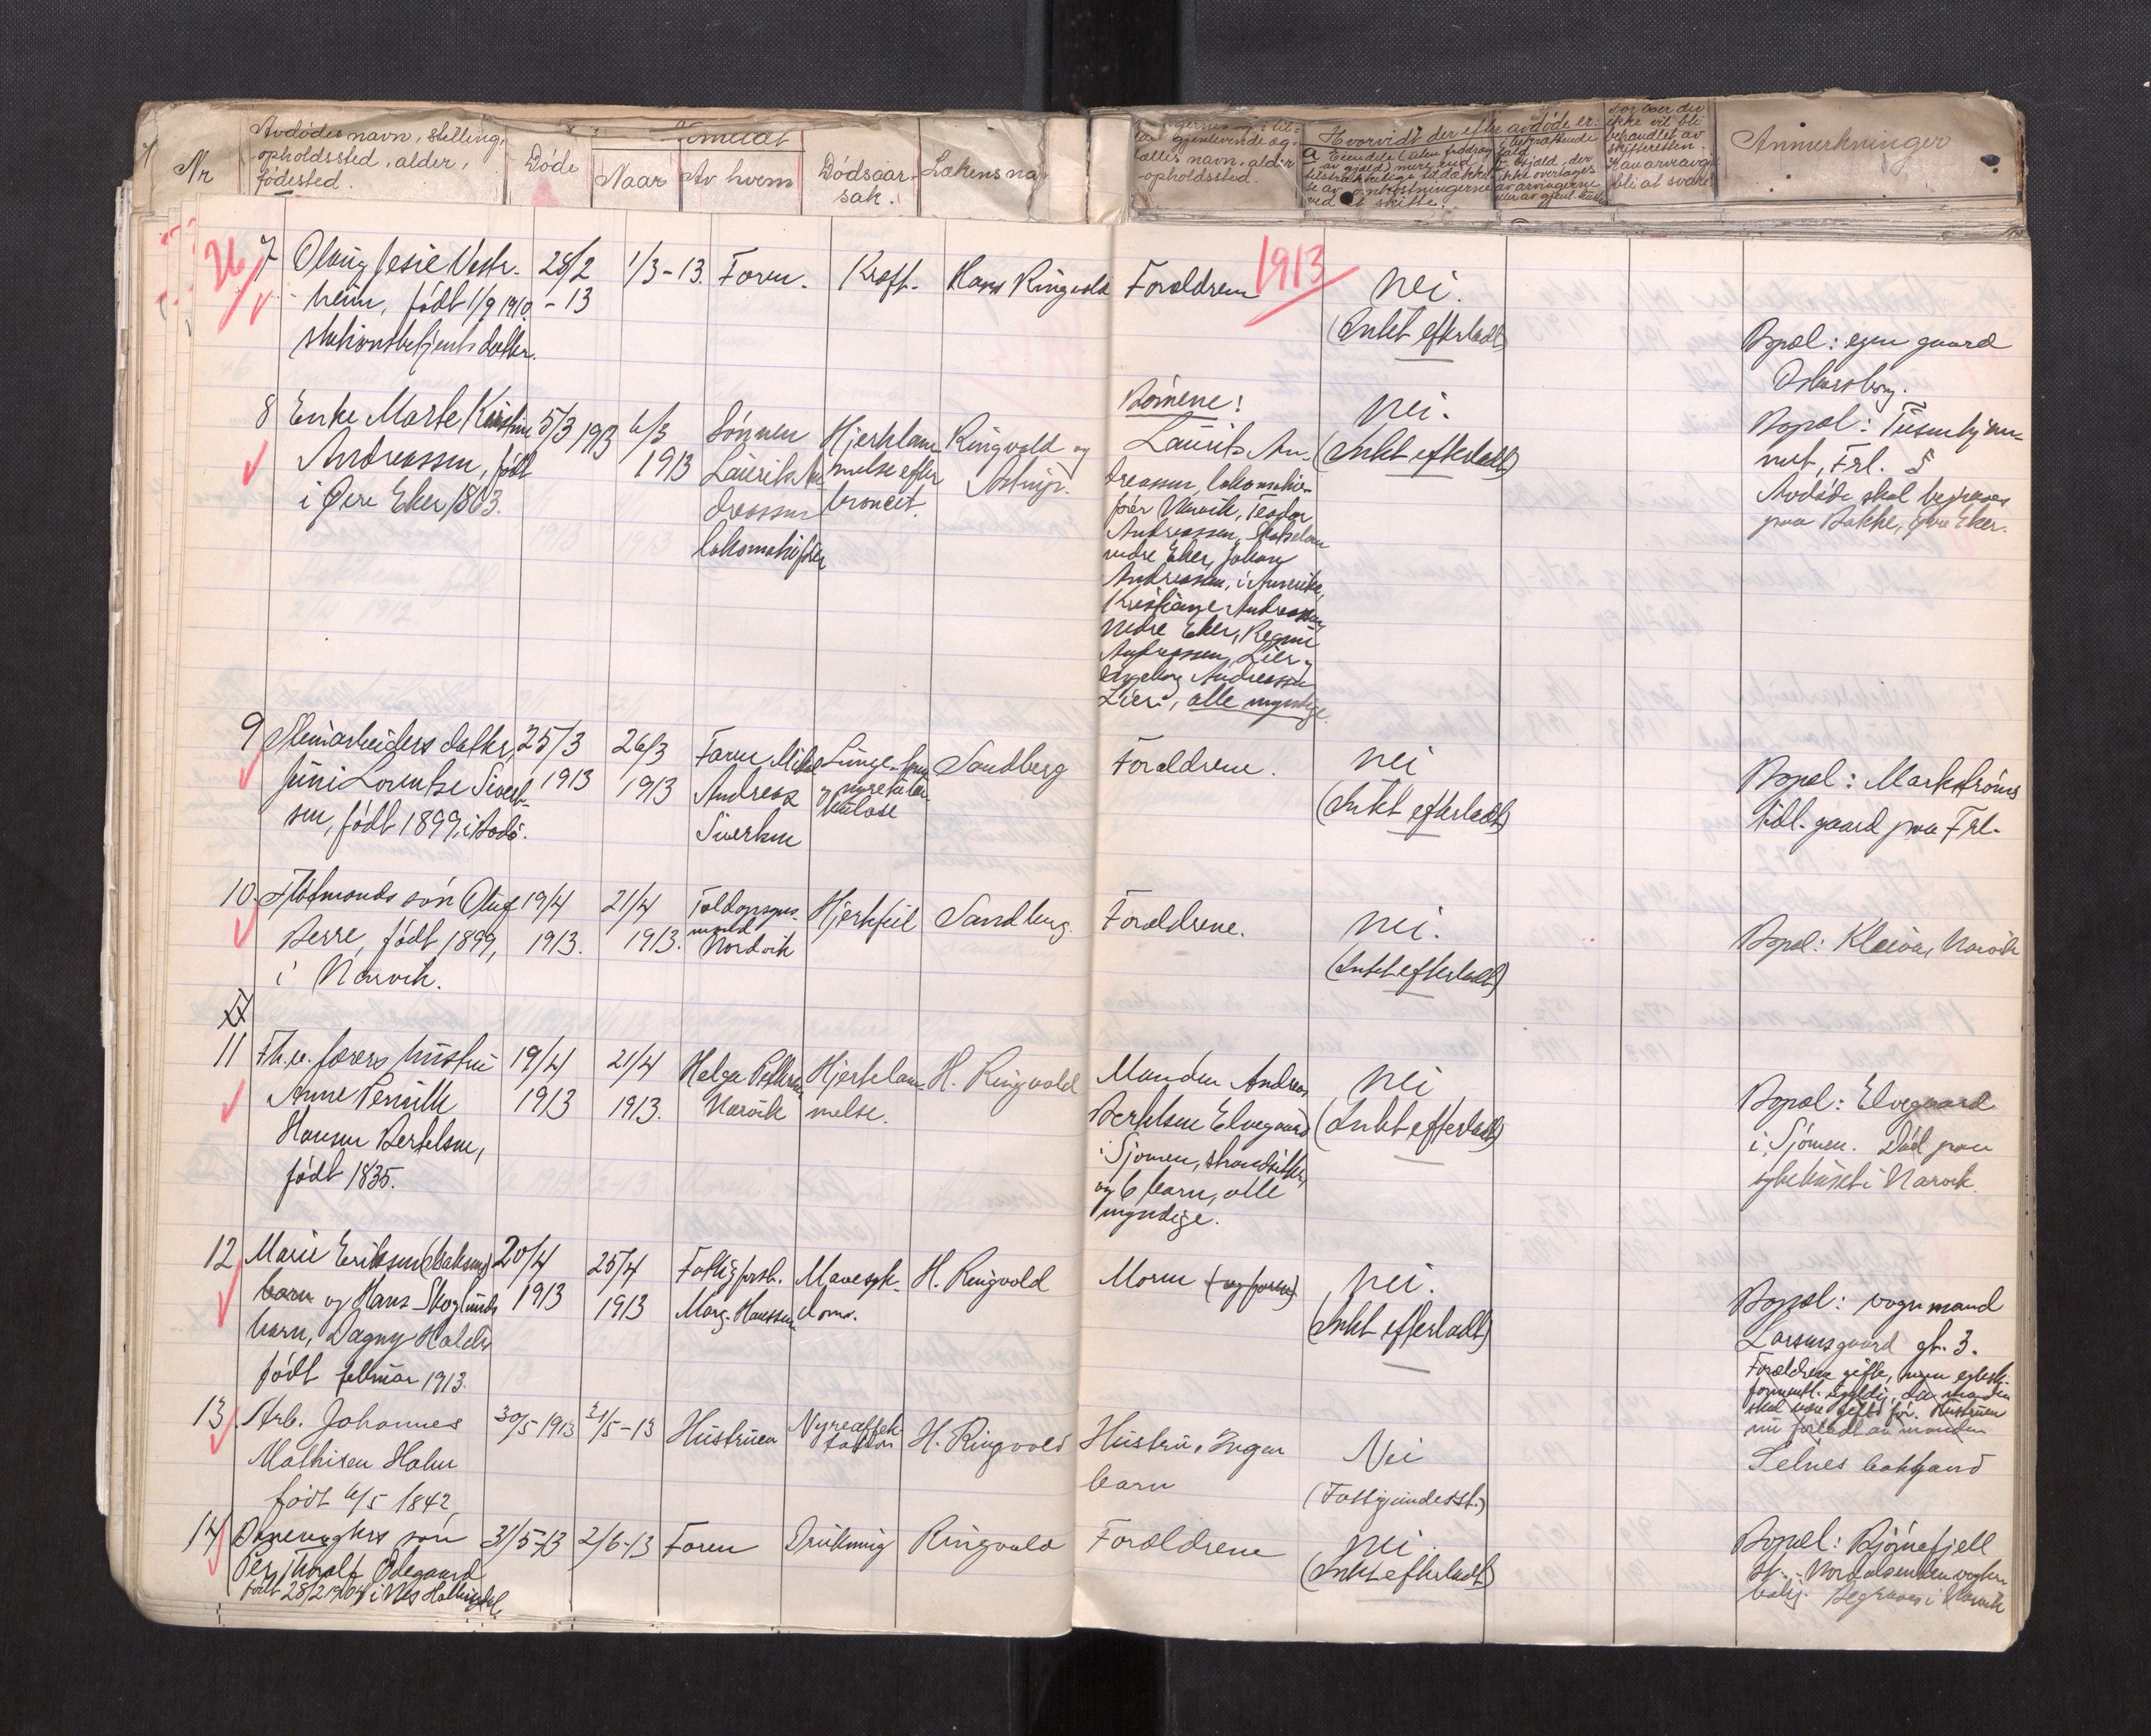 Nr
Avdødes navn, stilling,
opholdssted, alder,
fødested.
Døde
Anmeldt
Naar
Av hvem
Dødsaar-
sak.
Lækens na
gjenlevende æg-
fælles navn, alder
opholdssted.
Hvorvidt der efter avdøde er:
ikke vil bli
behandlet av
skifteretten.
Anmerkninger
26
1913
7
Olaug Jesie Vestr-
heim, født 1/9 1910.
stationsbetjents datter.
28/2
- 13
1/3-13.
Faren.
Kræft.
Hans Ringvold
Forældrene
Nei.
(Intet efterladt)
Bopæl: egen gaard
Oskarsborg.
8
Enke Marte Kirstine
Andreassen, født
i Øvre Eker 1863.
5/3 1913
6/3
1913
Sønnen
Laurits An
dreassen
lokomotivfører
Hjertelam
melse efter
broncit.
Ringvold og
Astrup.
Børnene:
Laurits An-
dreassen, lokomotiv-
fører Narvik, Teodor
Andreassen,
nedre Eker, Johan
Andreassen, i Amerika,
Kristiane Andreassen
Nedre Eker,
Andreassen, Lier,
Ingeborg Andreassen
Lier, alle myndige.
nei.
(Intet efterladt)
Bopæl:
Frl. 5
Avdøde skal begraves
paa Bakke, Øvre Eker.
9
Stenarbeiders datter,
Juni Lorentse Sivert-
sen, født 1899, i Bodø.
25/3
1913
26/3
1913
Faren Mikal
Andreas
Sivertsen
Lunge-
og nyretuber-
kulose
Sandberg
Forældrene.
nei
(Intet efterladt)
Bopæl: Markstrøms
tidl. gaard paa Frl.
10.
Flotmands søn Oluf
Berre, født 1899,
i Narvik.
19/4
1913.
21/4
1913.
Toldopsyns-
mand
Nordvik
Hjertefeil
Sandberg.
Forældrene.
nei.
(Intet efterladt)
Bopæl: Kleiva, Narvik
11
Fh.v. førers hustru
Anne Pernille
Hansen Bertelsen,
født 1835.
19/4
1913
21/4
1913.
Helga Pettersen
Narvik
Hjertelam-
melse.
H. Ringvold
Manden Andreas
Bertelsen Elvegaard
i Sjomen, strandsitter,
og 6 barn, alle
myndige.
nei
(Intet efterladt)
Bopæl: Elvegaard
i Sjomen. Død paa
sykehuset i Narvik.
12
Marie Eriksen (Isaksens)
barn og Hans Skoglunds
barn, Dagny Haldis
født februar 1913.
20/4
1913
25/4
1913
Fattigforst.
Marg. Hanssen
Mavesyk-
dom.
H. Ringvold
Moren (og faren)
nei.
(Intet efterladt)
Bopæl: vognmand
Larsens gaard gt. 3.
Forældrene gifte, men egtesk.
formentl. ugyldig, da manden
skal være gift før. Hustruen
nu forladt av manden
13
Arb. Johannes
Mathisen Holm
født 6/5 1842,
30/5 1913
31/5-13
Hustruen
Nyreaffek-
tation
H. Ringvold
Hustru. Ingen
barn
Nei
(Fattigundesst.)
Selnes bakgaard
14
Banevogters søn
Per Harald Ødegaard
født 28/2 1904 i Nes Hallingdal
31/5-13
2/6-13
Faren
Drukning
Ringvold
Forældrene
nei.
(Intet efterladt)
Bopæl: Bjørnefjell
st. - Nordalsenden vogter-
bolig. Begraves i Narvik